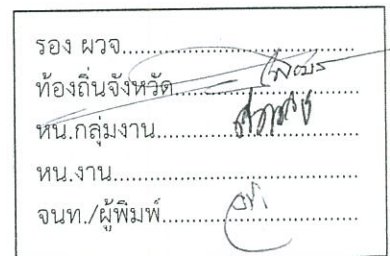 รอง ผวจ........................................
ท้องถิ่นจังหวัด..............................
หน.กลุ่มงาน..................................
หน.งาน.........................................
จนท./ผู้พิมพ์.................................